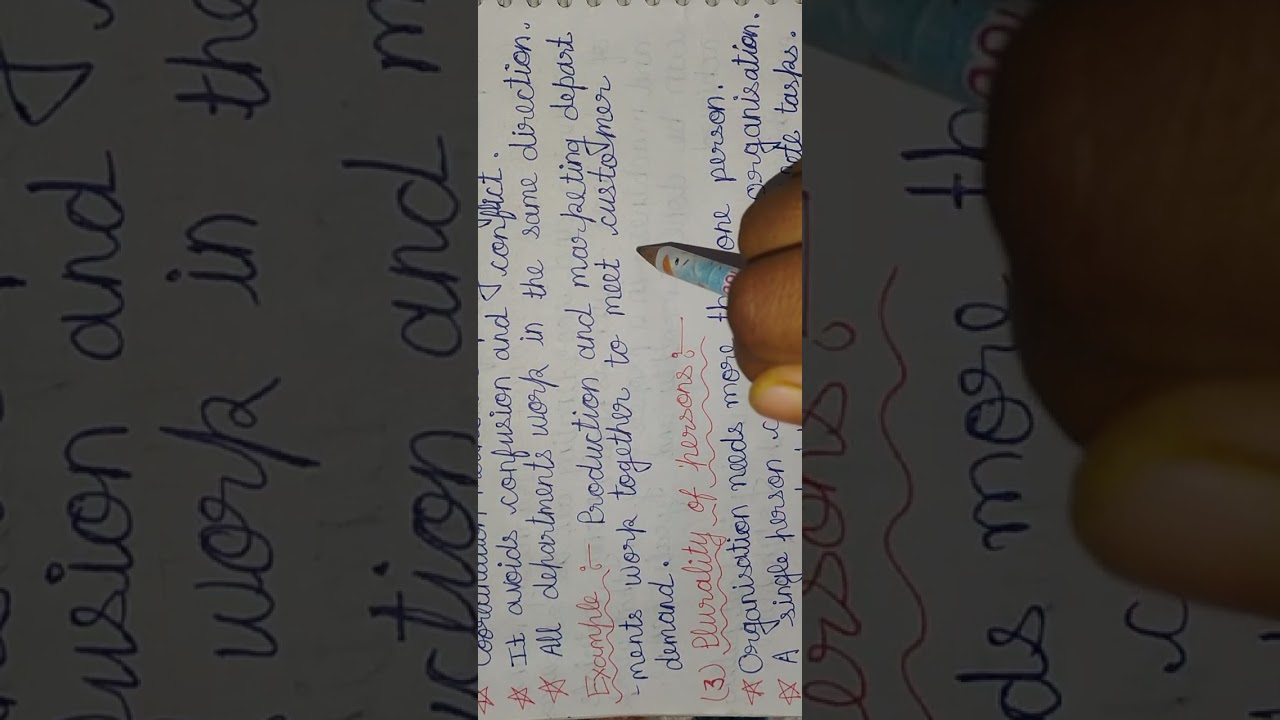 It avoids confusion and conflict.
All departments work in the same direction.
Example :- Production and marketing depart
-ments work together to meet customer
demand.
(3) Plurality of persons :-
Organisation needs more than one person.
A single person organisation.
tasks.